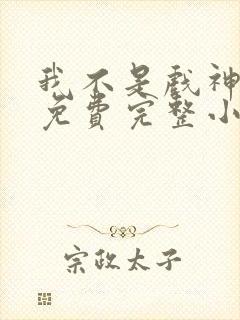 我不是戏神
免费完整小
宗政太子